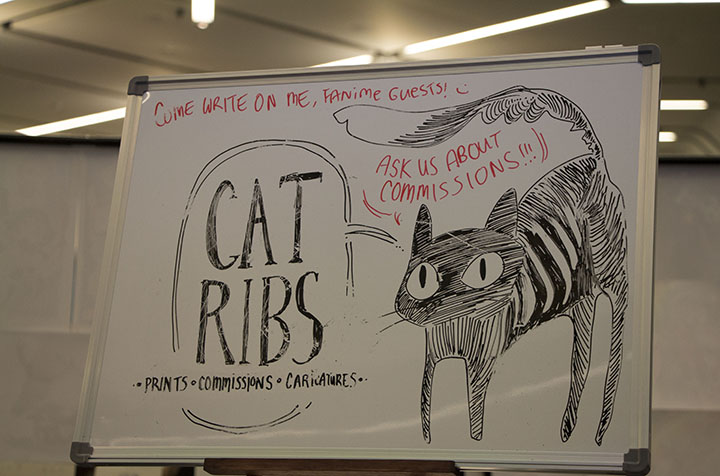 COME WRITE ON ME, FANiME GUESTS! :)
ASK US ABOUT
COMMISSIONS!!!
CAT
RIBS
• PRINTS • COMMISSIONS • CARICATURES •